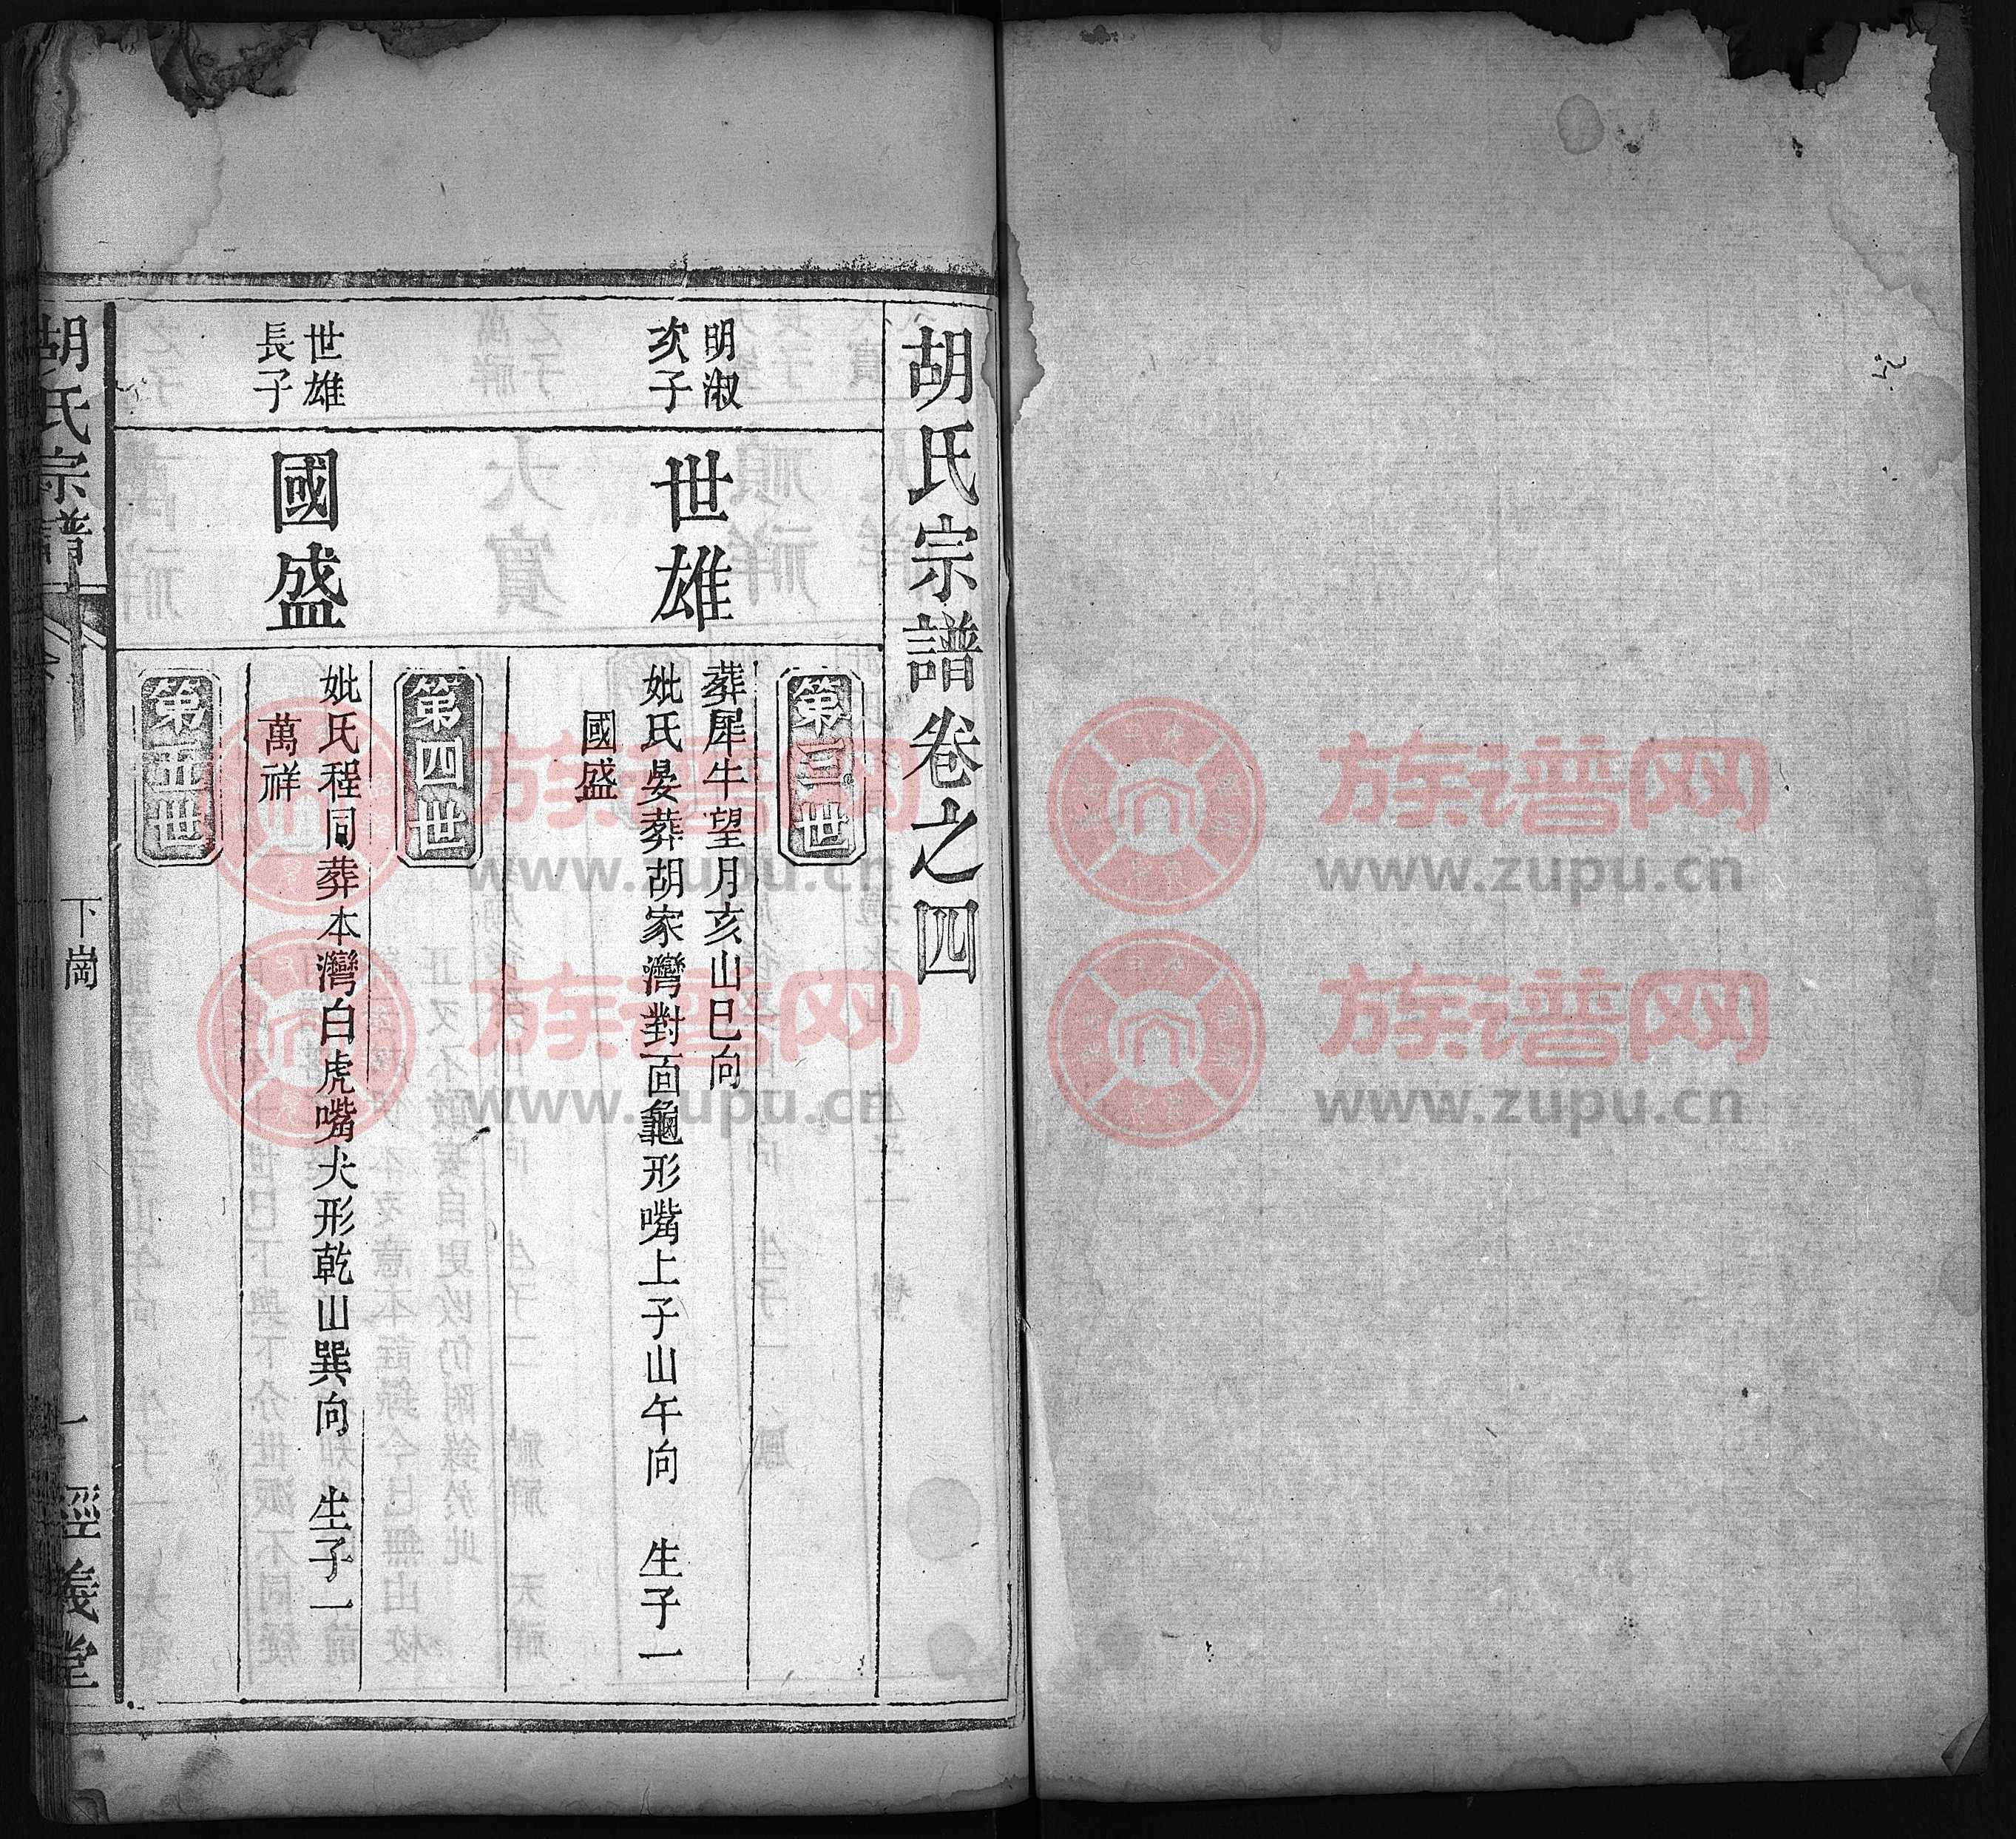 胡氏宗譜卷之四
第三世
明淑
次子
世雄
葬犀牛望月亥山巳向
妣氏晏葬胡家灣對面龜形嘴上子山午向 生子一
國盛
第四世
世雄
長子
國盛
妣氏程同葬本灣白虎嘴犬形乾山巽向 生子一
萬祥
第五世
胡氏宗譜
下崗
一
經義堂
族谱网
www.zupu.cn
族谱网
www.zupu.cn
族谱网
www.zupu.cn
族谱网
www.zupu.cn